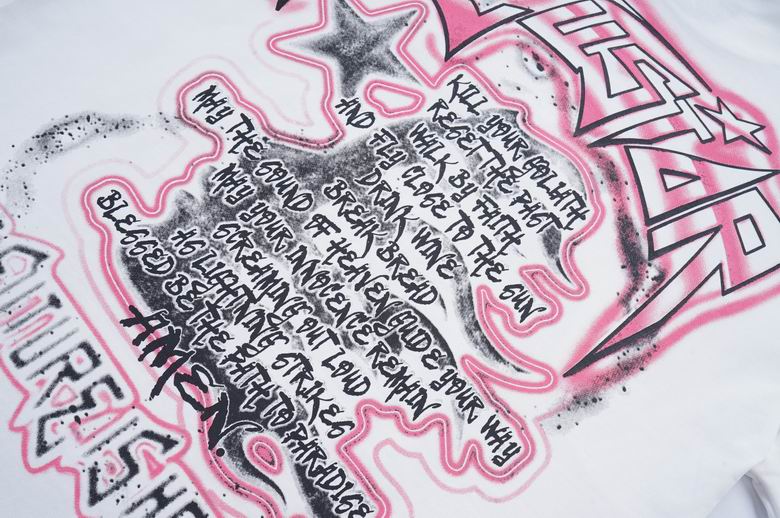 KILL YOUR GOLIATH
RESET THE PAST
WALK BY FAITH
AND FLY CLOSE TO THE SUN
DRINK WINE
BREAK BREAD
MAY THE SOUND OF HEAVEN GUIDE YOUR WAY
MAY YOUR INNOCENCE REMAIN
SCREAMING OUT LOUD
AS LIGHTNING STRIKES
BLESSED BE THE PATH TO PARADISE
AMEN.